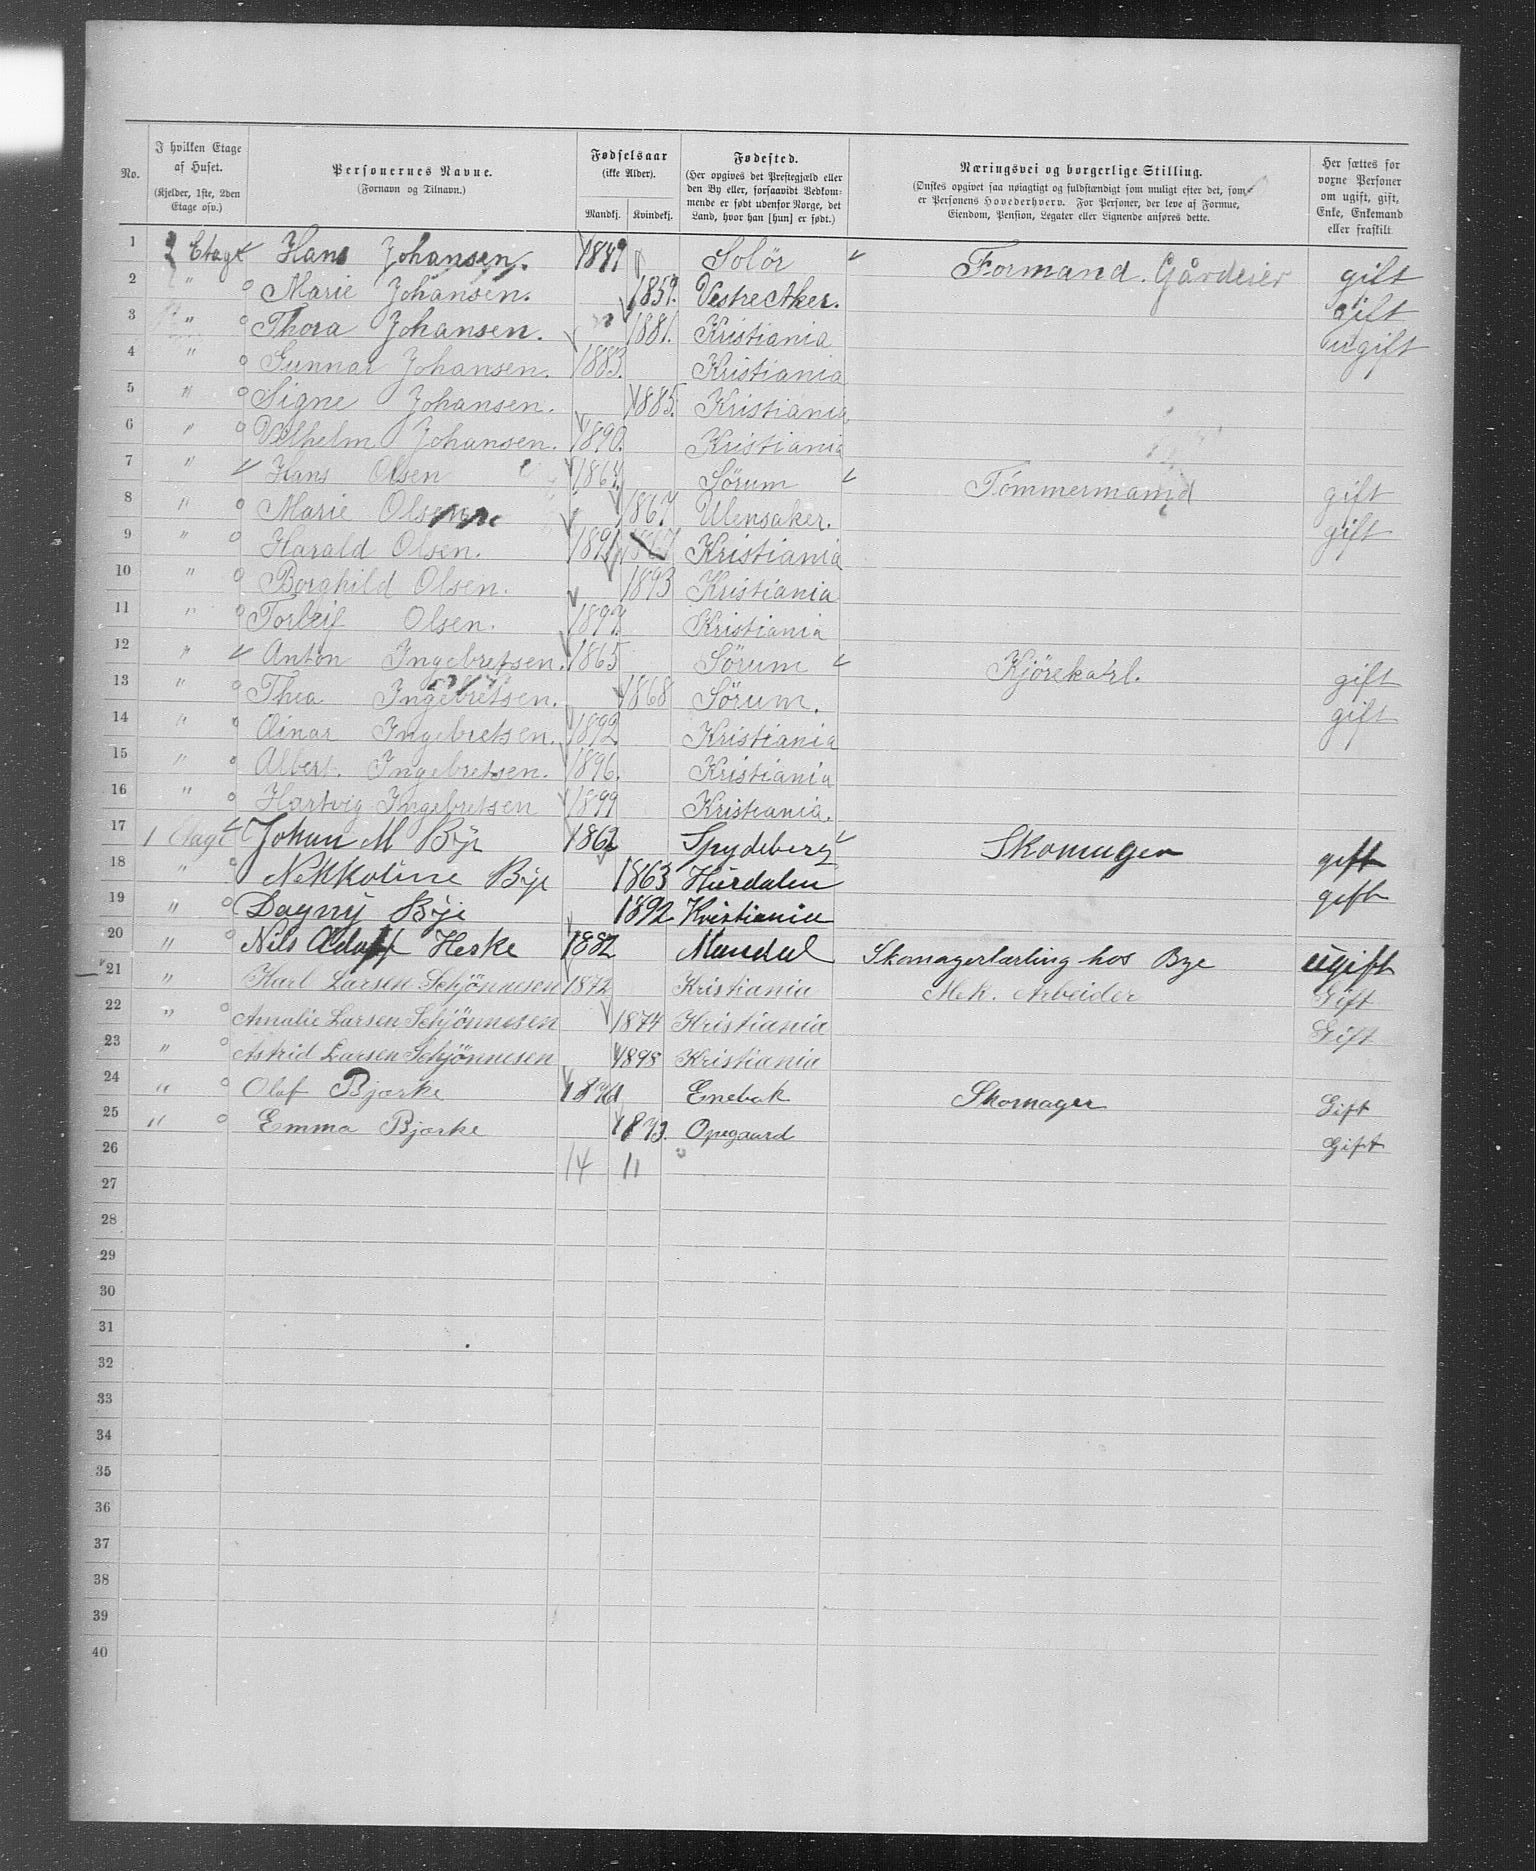 No. | I hvilken Etage af Huset. (Kjelder, 1ste, 2den Etage osv.) | Personernes Navne. (Fornavn og Tilnavn.) | Fødselsaar (ikke Alder). Mandkj. Kvindekj. | Fødested. (Her opgives det Prestegjæld eller den By eller, forsaavidt Vedkommende er født udenfor Norge, det Land, hvor han [hun] er født.) | Næringsvei og borgerlige Stilling. (Ønskes opgivet saa nøiagtigt og fuldstændigt som muligt efter det, som er Personens Hovederhverv. For Personer, der leve af Formue, Eiendom, Pension, Legater eller Lignende anføres dette. | Her sættes for voxne Personer om ugift, gift, Enke, Enkemand eller fraskilt
1 2 Etage Hans Johansen. 1849 Solör Formand. Gårdeier gift
2 " Marie Johansen. 1859. Vestre Aker. gift
3 " Thora Johansen. 1881. Kristiania ugift
4 " Gunnar Johansen. 1883. Kristiania
5 " Signe Johansen. 1885. Kristiania
6 " Vilhelm Johansen. 1890. Kristiania
7 " Hans Olsen 1867. Sörum Tömmermand gift
8 " Marie Olsen 1867 Ulensaker. gift
9 " Harald Olsen. 1891 Kristiania
10 " Borghild Olsen. 1893 Kristiania
11 " Torleif Olsen. 1897. Kristiania
12 " Anton Ingebretsen. 1865 Sörum Kjörekarl. gift
13 " Thea Ingebretsen. 1868 Sörum. gift
14 " Einar Ingebretsen. 1892. Kristiania
15 " Albert. Ingebretsen. 1896. Kristiania
16 " Hartvig Ingebretsen 1899 Kristiania.
17 1 Etage Johan M Bÿe 1862 Spydeberg Skomager gift
18 " Nikkoline Bÿe 1863 Hurdalen gift
19 " Dagny Bÿe 1892 Kristiania
20 " Nils Adolf Heske 1882 Mandal Skomagerlærling hos Bye ugift
21 " Karl Larsen Schjönnesen 1872 Kristiania Mek. Arbeider Gift
22 " Amalie Larsen Schjönnesen 1874 Kristiania Gift
23 " Astrid Larsen Schjönnesen 1898 Kristiania
24 " Olaf Bjørke Enebak Skomager Gift
25 " Emma Bjørke 1873. Opegaard Gift
26 14 11
27
28
29
30
31
32
33
34
35
36
37
38
39
40